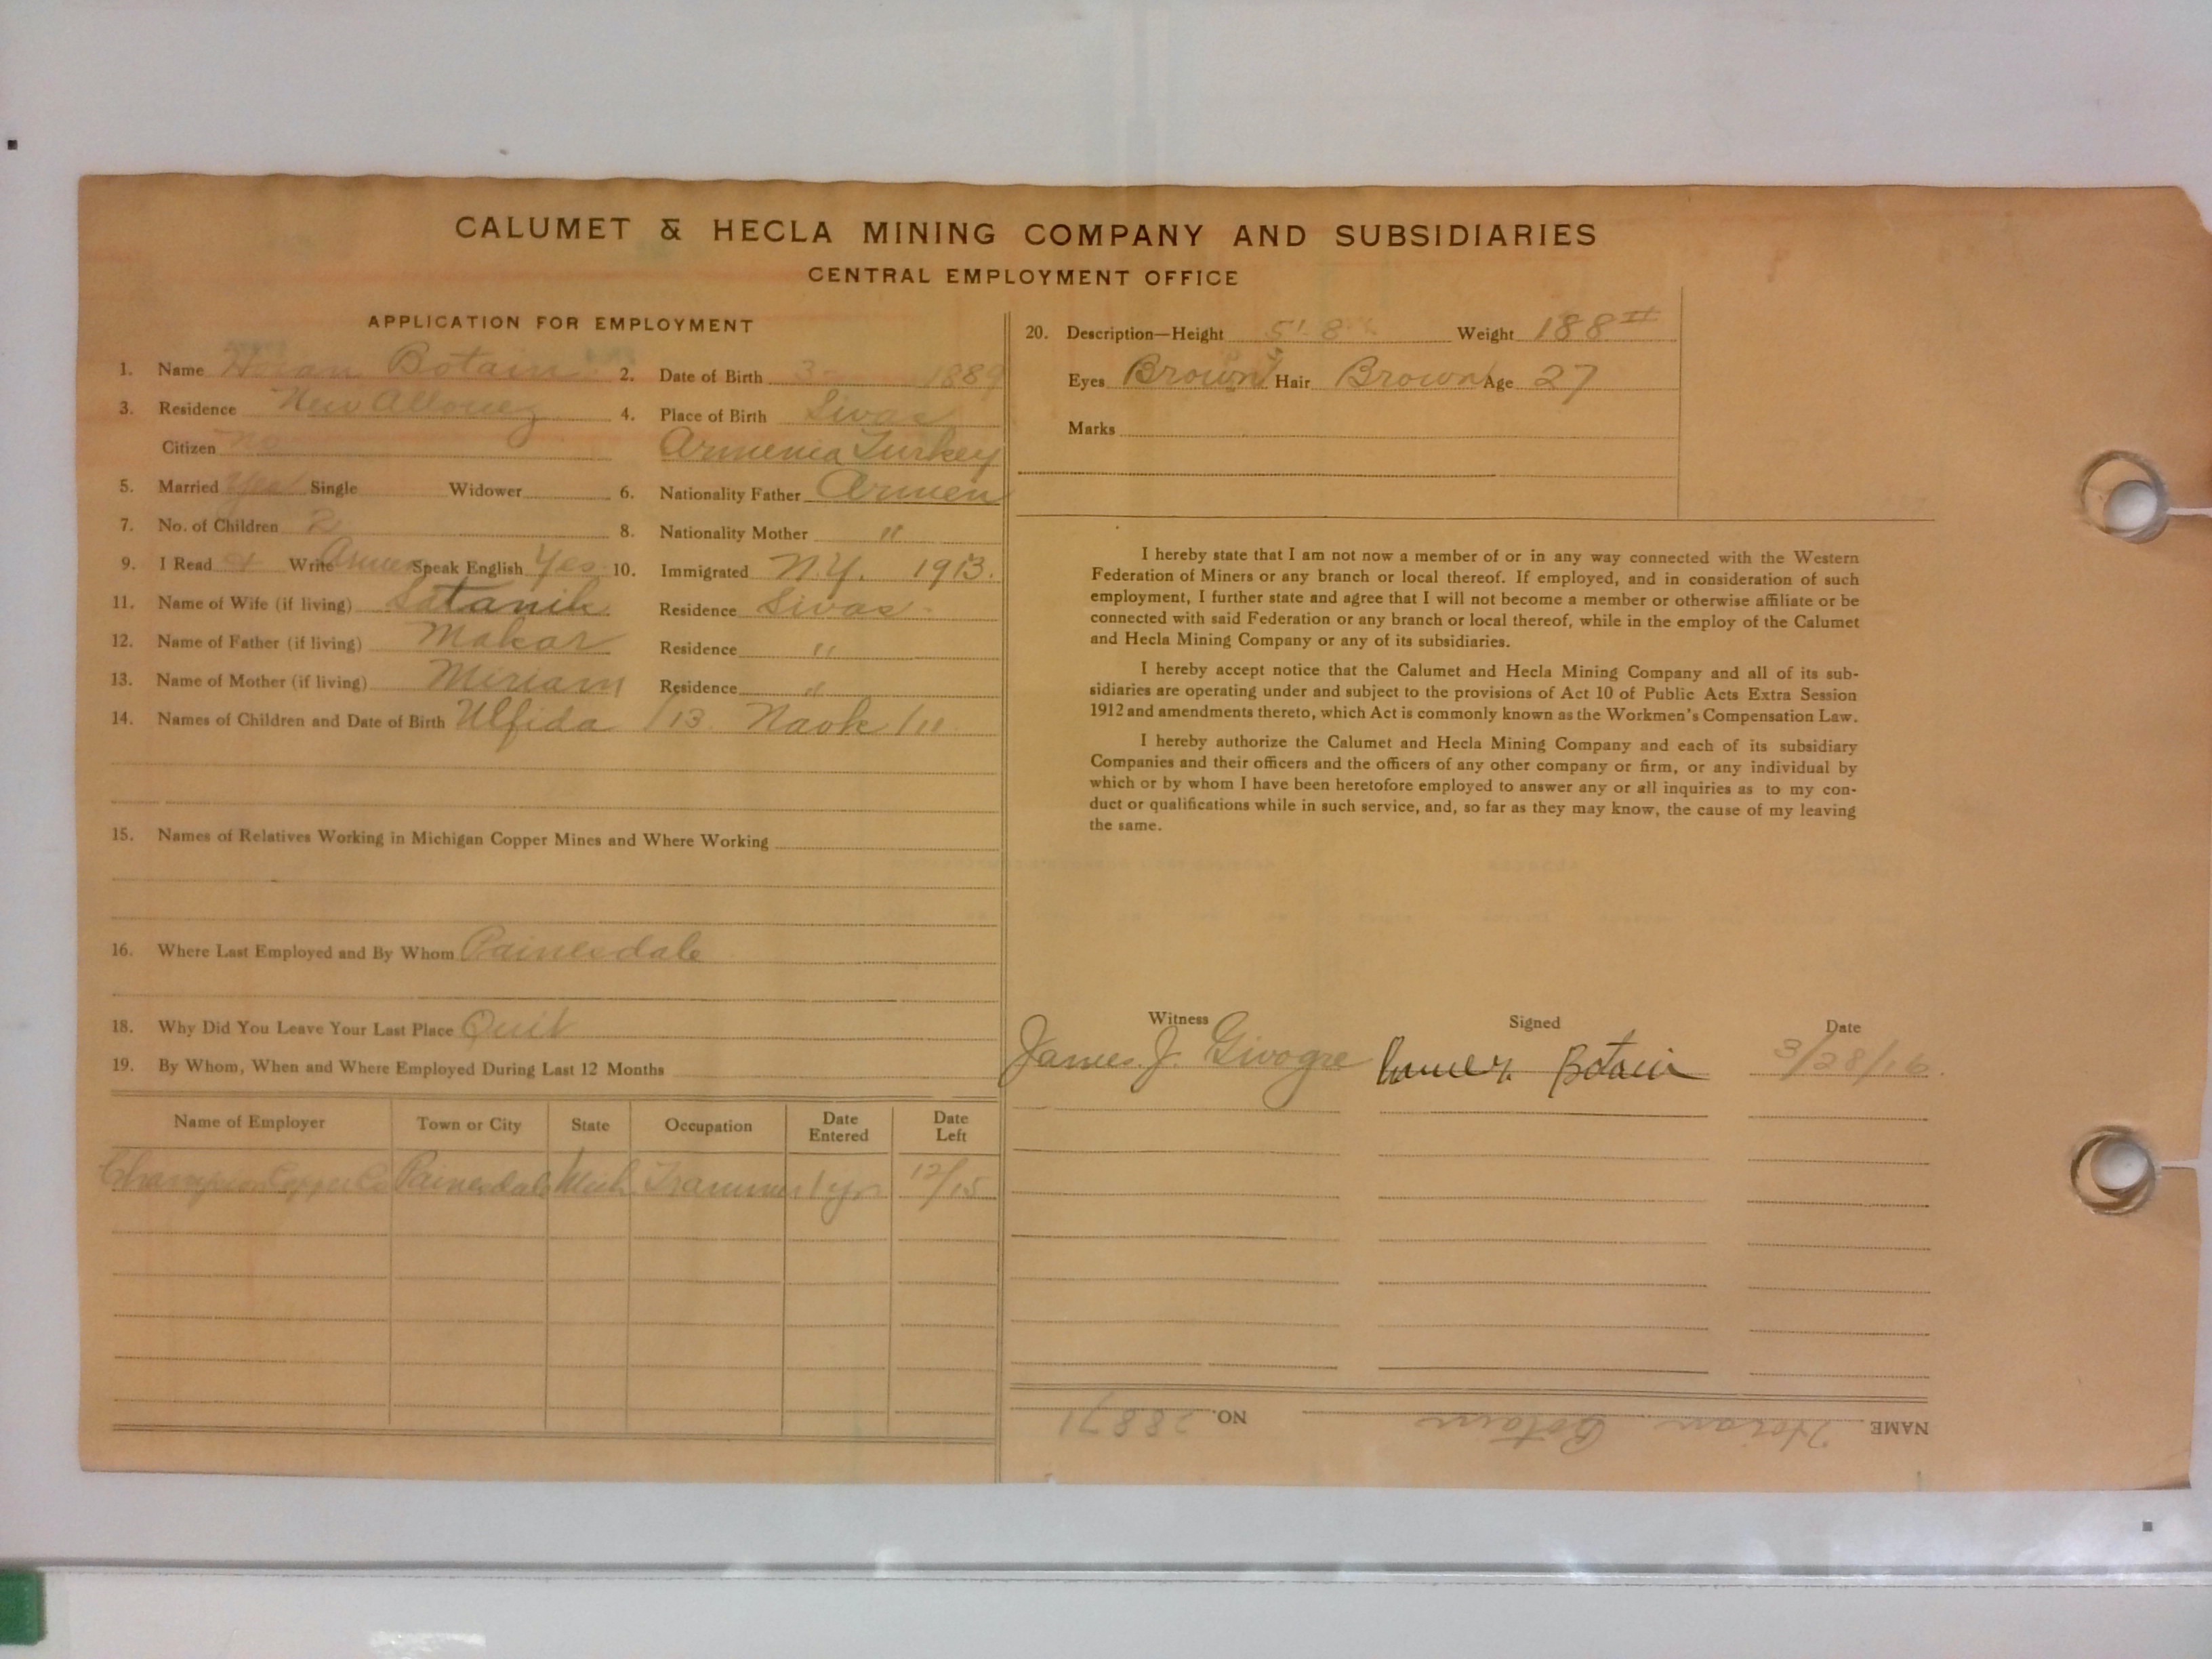 CALUMET & HECLA MINING COMPANY AND SUBSIDIARIES
CENTRAL EMPLOYMENT OFFICE
APPLICATION FOR EMPLOYMENT
1. Name Botain 2. Date of Birth 3- 1889
3. Residence New Allouez 4. Place of Birth Sivas
Citizen No Armenia Turkey
5. Married Yes Single Widower 6. Nationality Father Armen
7. No. of Children 2 8. Nationality Mother "
9. I Read & Write Armen Speak English Yes 10. Immigrated N.Y. 1913.
11. Name of Wife (if living) Satanik Residence Sivas
12. Name of Father (if living) Makar Residence "
13. Name of Mother (if living) Miriam Residence "
14. Names of Children and Date of Birth Ulfida /13. Naok /11
15. Names of Relatives Working in Michigan Copper Mines and Where Working
16. Where Last Employed and By Whom Painesdale
18. Why Did You Leave Your Last Place Quit
19. By Whom, When and Where Employed During Last 12 Months
Name of Employer Town or City State Occupation Date Entered Date Left
Champion Copper Co Painesdale Mich Trammer 1 yr 12/15
20. Description—Height 5'-8 Weight 188
Eyes Brown Hair Brown Age 27
Marks
I hereby state that I am not now a member of or in any way connected with the Western
Federation of Miners or any branch or local thereof. If employed, and in consideration of such
employment, I further state and agree that I will not become a member or otherwise affiliate or be
connected with said Federation or any branch or local thereof, while in the employ of the Calumet
and Hecla Mining Company or any of its subsidiaries.
I hereby accept notice that the Calumet and Hecla Mining Company and all of its sub-
sidiaries are operating under and subject to the provisions of Act 10 of Public Acts Extra Session
1912 and amendments thereto, which Act is commonly known as the Workmen's Compensation Law.
I hereby authorize the Calumet and Hecla Mining Company and each of its subsidiary
Companies and their officers and the officers of any other company or firm, or any individual by
which or by whom I have been heretofore employed to answer any or all inquiries as to my con-
duct or qualifications while in such service, and, so far as they may know, the cause of my leaving
the same.
Witness Signed Date
James J. Givogre Botain 3/28/16.
NAME Botain NO. 28871